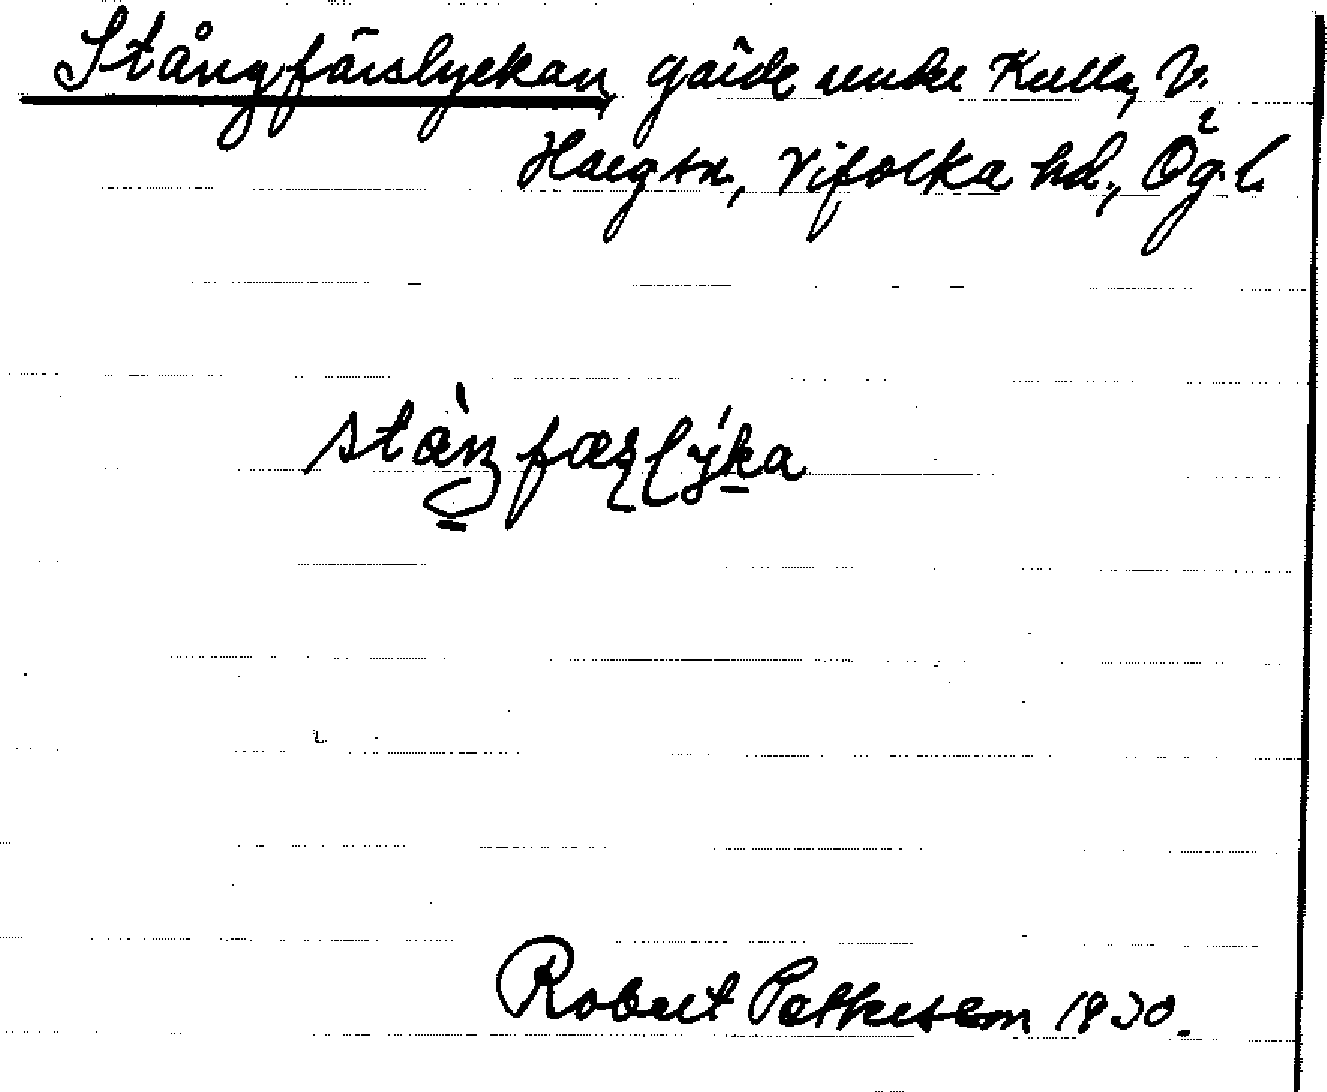 Stångfärslyckan, gärde under Kulla, V.
Harg sn, Vifolka hd., Ög. l.
Robert Pettersson 1930.